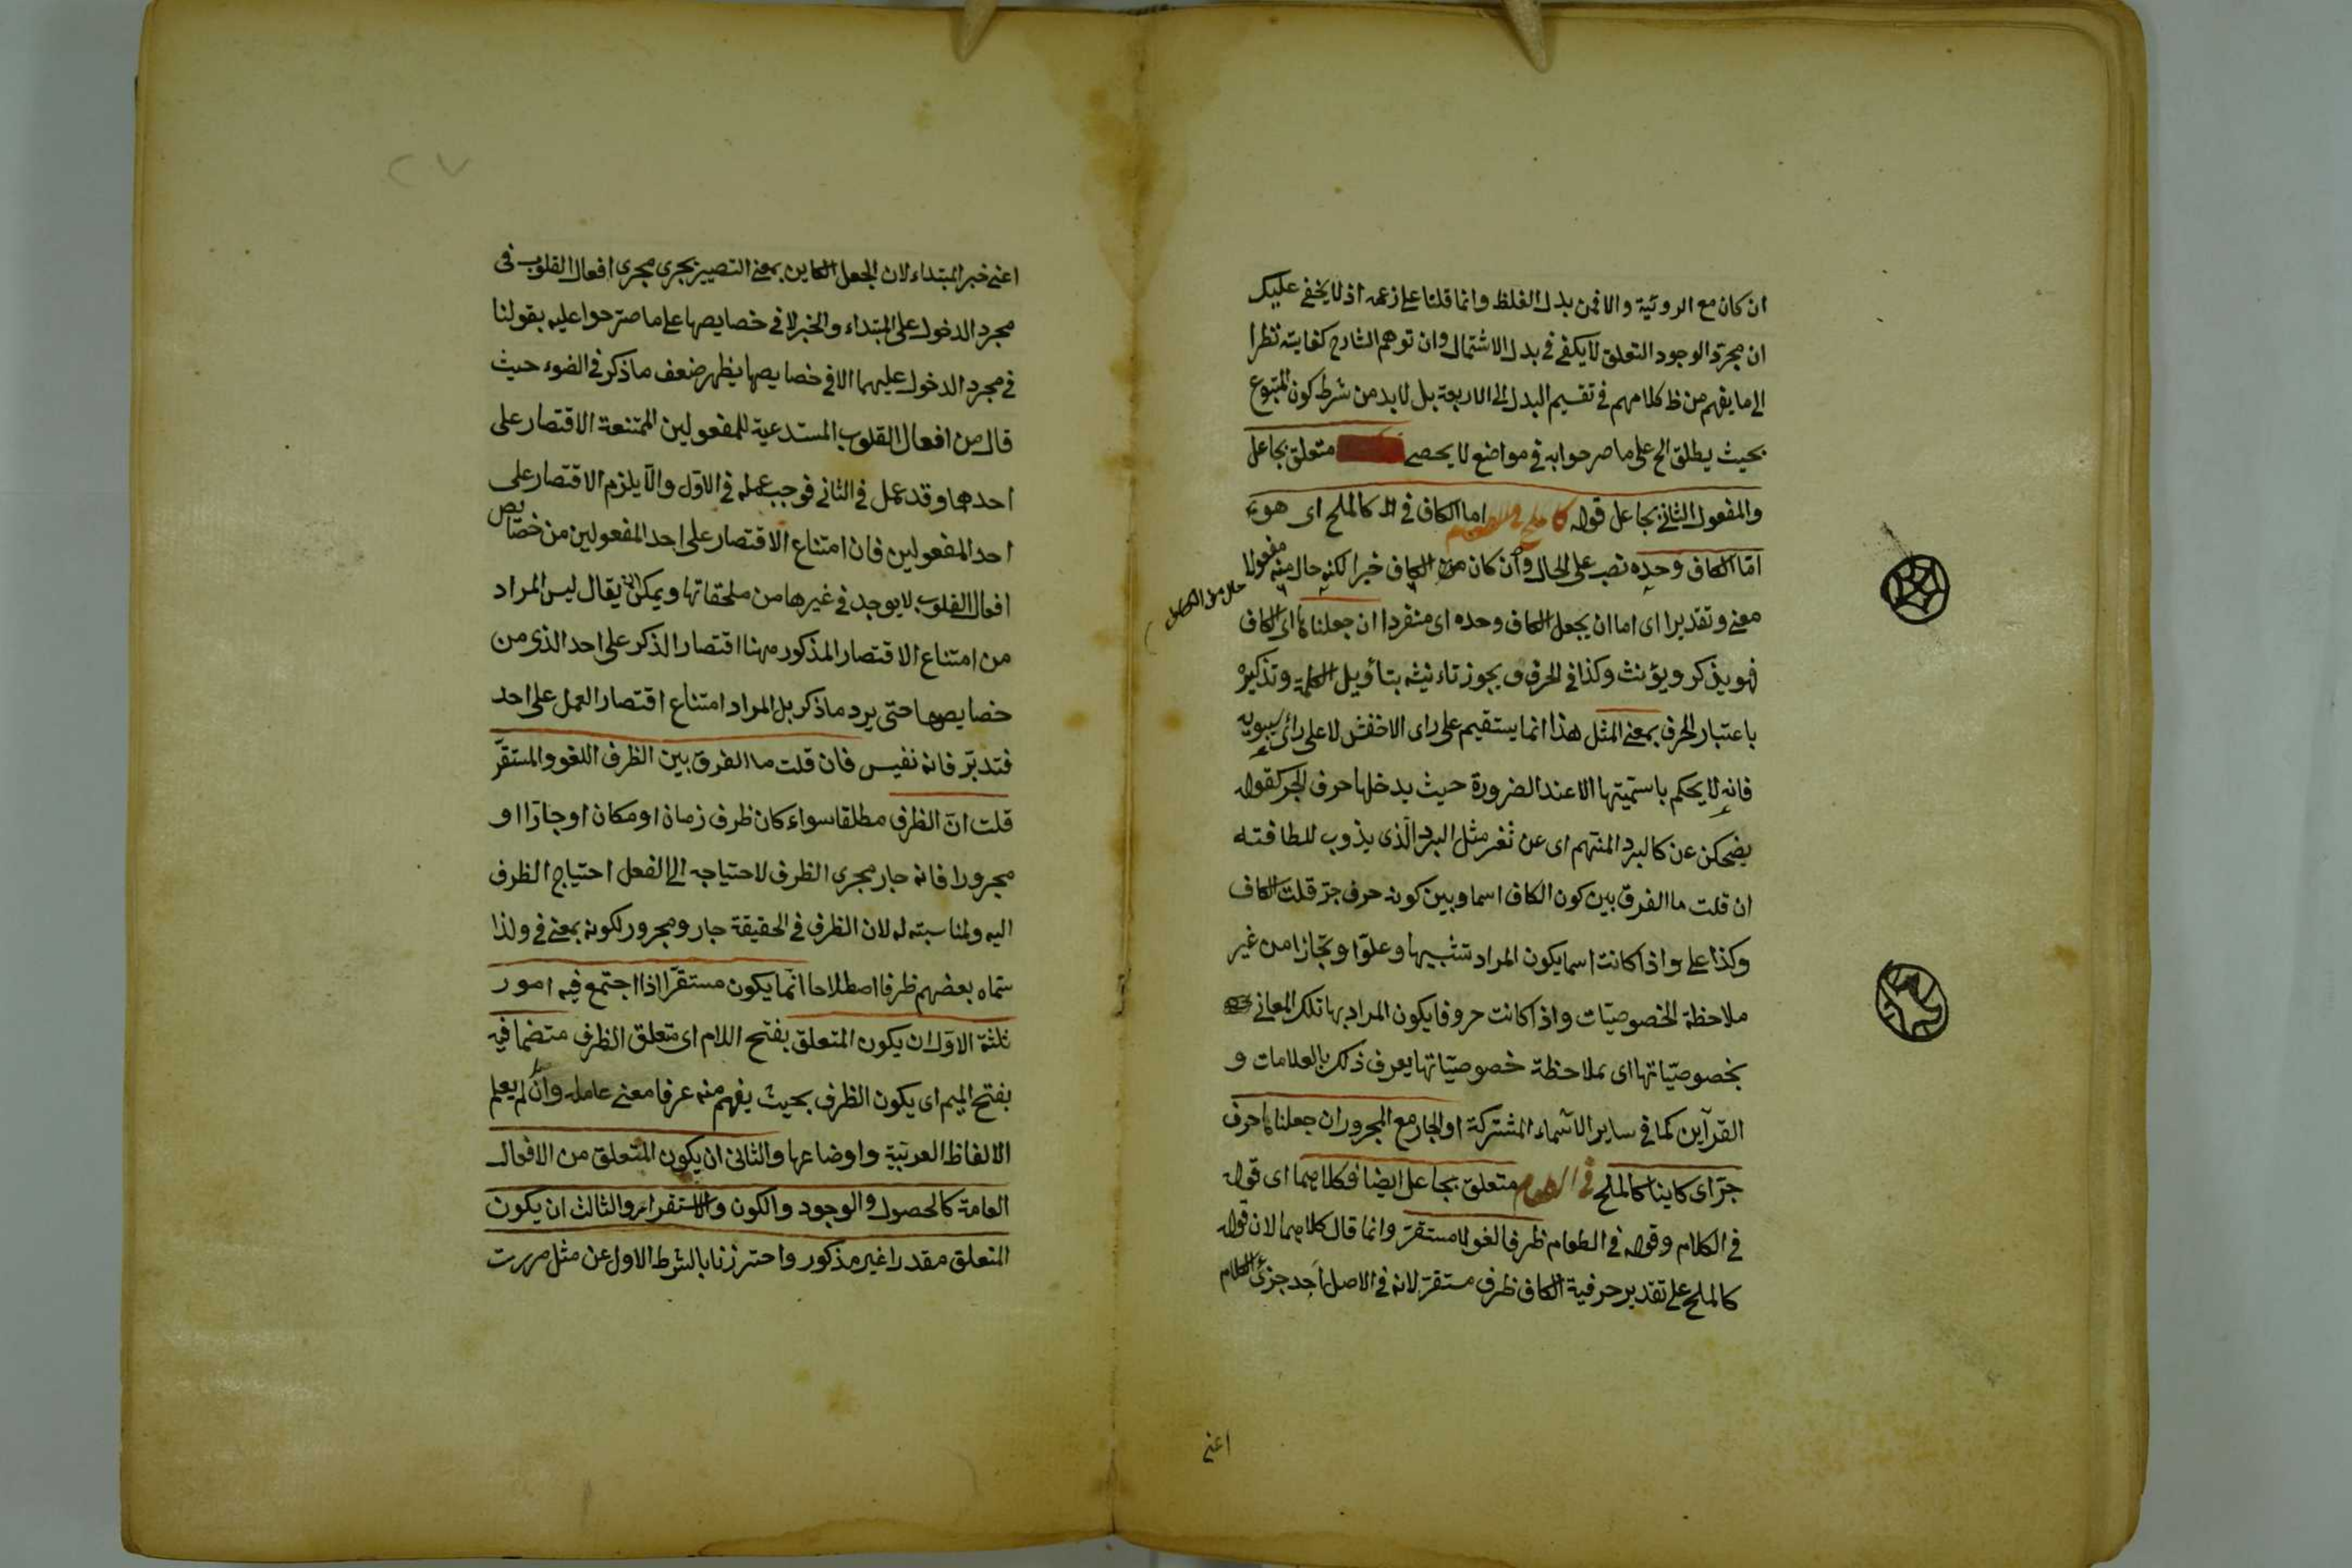 ان كان مع الروئية والا فمن بدل الغلظ وانما قلنا على زعمه اذ لا يخفى عليك
ان مجرد الوجود التعلق لا يكفى فى بدل الاشتمال وان توهم الشارح كفايته نظرا
الى ما يفهم من ظ كلامهم فى تقسيم البدل الى الاربعة بل لا بد من شرط كون المتبوع
بحيث يطلق الخ على ما صرحوا به فى مواضع لا يحصى متعلق بجاعل
والمفعول الثانى بجاعل قوله كالملح فى الطعام اما الكاف فى كالملح اى هو
امّا الكاف وحده نصب على الحال وان كان الكاف خبرا لكنه حال منه مفعولا
حال من
معنى وتقديرا اى اما ان يجعل الكاف وحده اى منفردا ان جعلناها اى الكاف
فهو يذكر ويؤنث وكذا فى الحرف ويجوز تاءنيثه بتأويل الكلمة وتذكيره
باعتبار الحرف بمعنى المثل هذا انما يستقيم على راى الاخفش لا على رائ سيبويه
فانه لا يحكم باسميتها الا عند الضرورة حيث يدخلها حرف الجر كقوله
يضحكن عن كالبرد المنهم اى عن ثغر مثل البرد الّذى يذوب للطافته
ان قلت ما الفرق بين كون الكاف اسما وبين كونه حرف جرّ قلت الكاف
وكذا على واذا كانت اسما يكون المراد تشبيها وعلوّا وتجازا من غير
ملاحظة الخصوصيّات واذا كانت حروفا يكون المراد بها تلك المعانى
بخصوصيّاتها اى بملاحظة خصوصيّاتها يعرف ذلك بالعلامات و
القرآين كما فى ساير الاسّماء المشتركة او الجار مع المجرور ان جعلناها حرف
جرّ اى كاينا كالملح فى الطعام متعلق بجاعل ايضا فكلاهما اى قوله
فى الكلام وقوله فى الطعام ظرفا لغو لا مستقرّ وانما قال كلاهما لان قوله
كالملح على تقدير حرفية الكاف ظرف مستقرّ لانه فى الاصل احد جزئ الكلام
اعنى
٢٧
اعنى خبر المبتداء لان الجعل الكاين بمعنى التصيير يجرى مجرى افعال القلوب فى
مجرد الدخول على المبتداء والخبر لا فى خصايصها على ما صرّحوا عليه بقولنا
فى مجرد الدخول عليهما الا فى خصايصها يظهر ضعف ما ذكر فى الضوء حيث
قال من افعال القلوب المستدعية للمفعولين الممتنعة الاقتصار على
احدهما وقد عمل فى الثانى فوجب عمله فى الاوّل والّا يلزم الاقتصار على
احد المفعولين فان امتناع الاقتصار على احد المفعولين من خصايص
افعال القلوب لا يوجد فى غيرها من ملحقاتها ويمكن ان يقال ليس المراد
من امتناع الاقتصار المذكور مهنا اقتصار الذكر على احد الذى من
خصايصها حتى يرد ما ذكر بل المراد امتناع اقتصار العمل على احد
فتدبّر فانه نفيس فان قلت ما الفرق بين الظرف اللغو والمستقرّ
قلت انّ الظرف مطلقا سواء كان ظرف زمان او مكان او جارّا او
مجرورا فانه جار مجرى الظرف لاحتياجه الى الفعل احتياج الظرف
اليه ولمناسبته له لان الظرف فى الحقيقة جار ومجرور لكونه بمعنى فى ولذا
سّماه بعضهم ظرفا اصطلاحا انّما يكون مستقرّا اذا اجتمع فيه امور
ثلثة الاوّل ان يكون المتعلق بفتح اللام اى متعلق الظرف متضمنا فيه
بفتح الميم اى يكون الظرف بحيث يفهم منه عرفا معنى عامله وان لم يعلم
الالفاظ العربيّة واوضاعها والثانى ان يكون المتعلق من الافعال
العامة كالحصول والوجود والكون والاستقرار والثالث ان يكون
المتعلق مقدرا غير مذكور واحترزنا بالشرط الاول عن مثل مررت